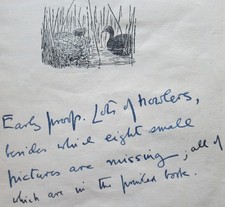 Early proof. Lots of howlers,
besides which eight small
pictures are missing, all of
which are in the printed book.